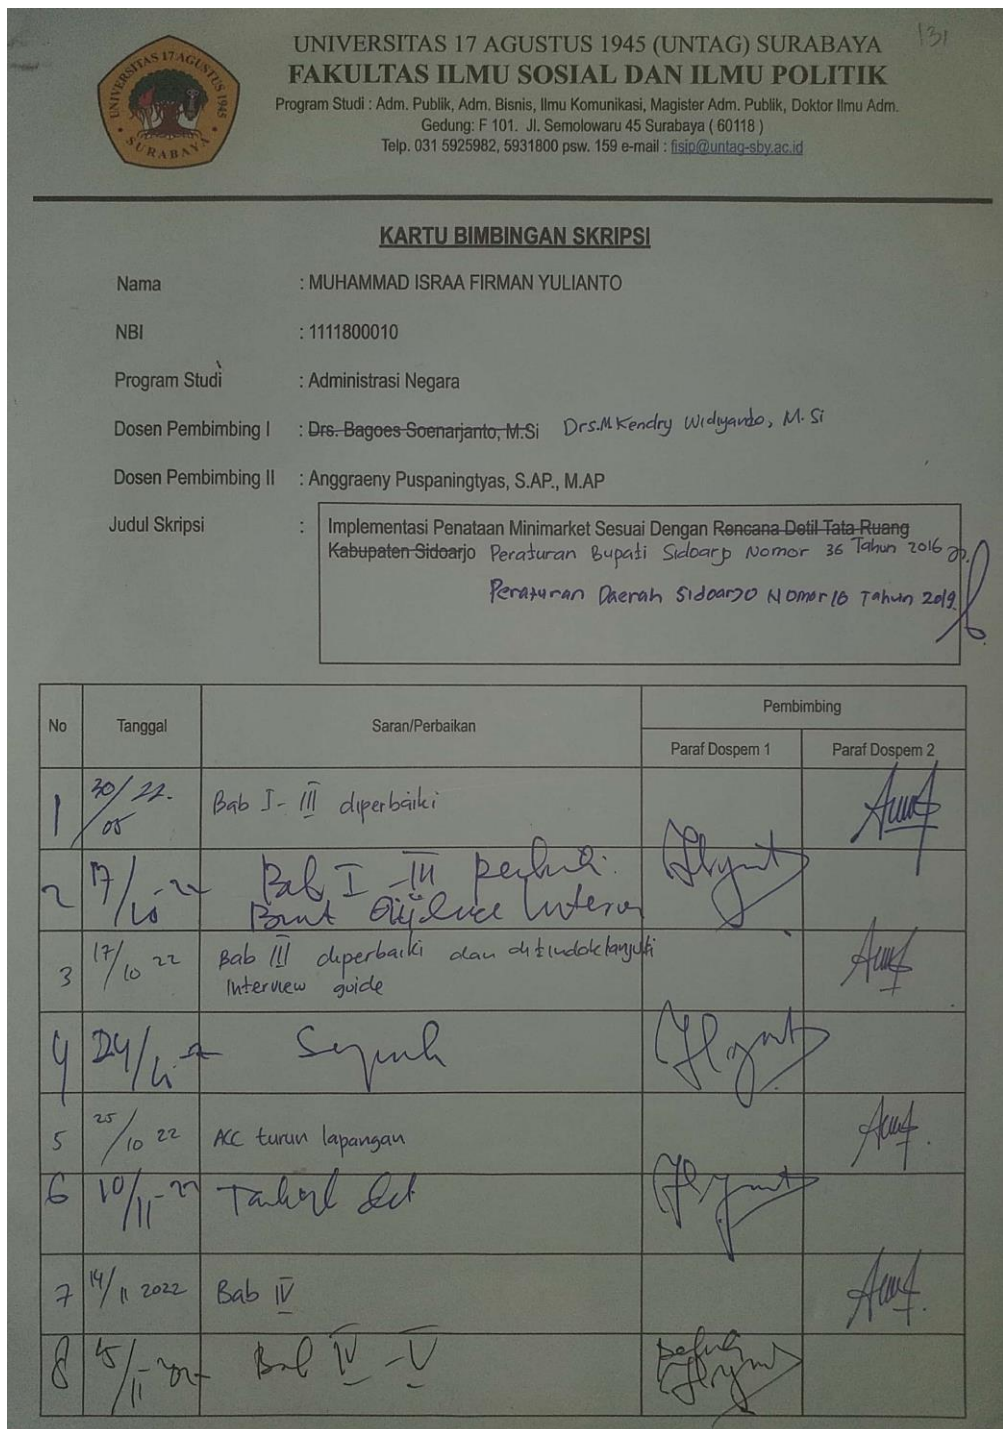 131
UNIVERSITAS 17 AGUSTUS 1945 (UNTAG) SURABAYA
FAKULTAS ILMU SOSIAL DAN ILMU POLITIK
Program Studi : Adm. Publik, Adm. Bisnis, Ilmu Komunikasi, Magister Adm. Publik, Doktor Ilmu Adm.
Gedung: F 101. Jl. Semolowaru 45 Surabaya ( 60118 )
Telp. 031 5925982, 5931800 psw. 159 e-mail : fisip@untag-sby.ac.id
UNIVERSITAS 17 AGUSTUS 1945
SURABAYA
KARTU BIMBINGAN SKRIPSI
Nama : MUHAMMAD ISRAA FIRMAN YULIANTO
NBI : 1111800010
Program Studi : Administrasi Negara
Dosen Pembimbing I : Drs. Bagoes Soenarjanto, M.Si Drs.M Kendry Widiyanto, M.Si
Dosen Pembimbing II : Anggraeny Puspaningtyas, S.AP., M.AP
Judul Skripsi : Implementasi Penataan Minimarket Sesuai Dengan Rencana Detil Tata Ruang
Kabupaten Sidoarjo Peraturan Bupati Sidoarjo Nomor 36 Tahun 2016
Peraturan Daerah Sidoarjo Nomor 10 Tahun 2019.
No Tanggal Saran/Perbaikan Pembimbing
Paraf Dospem 1 Paraf Dospem 2
1 30/05 22. Bab I - III diperbaiki
2 17/10-22 Bab I - III
Buat
3 17/10 22 Bab III diperbaiki dan ditindaklanjuti
Interview guide
4 24/
5 25/10 22 ACC turun lapangan
6 10/11-22
7 14/11 2022 Bab IV
8 Bab IV - V